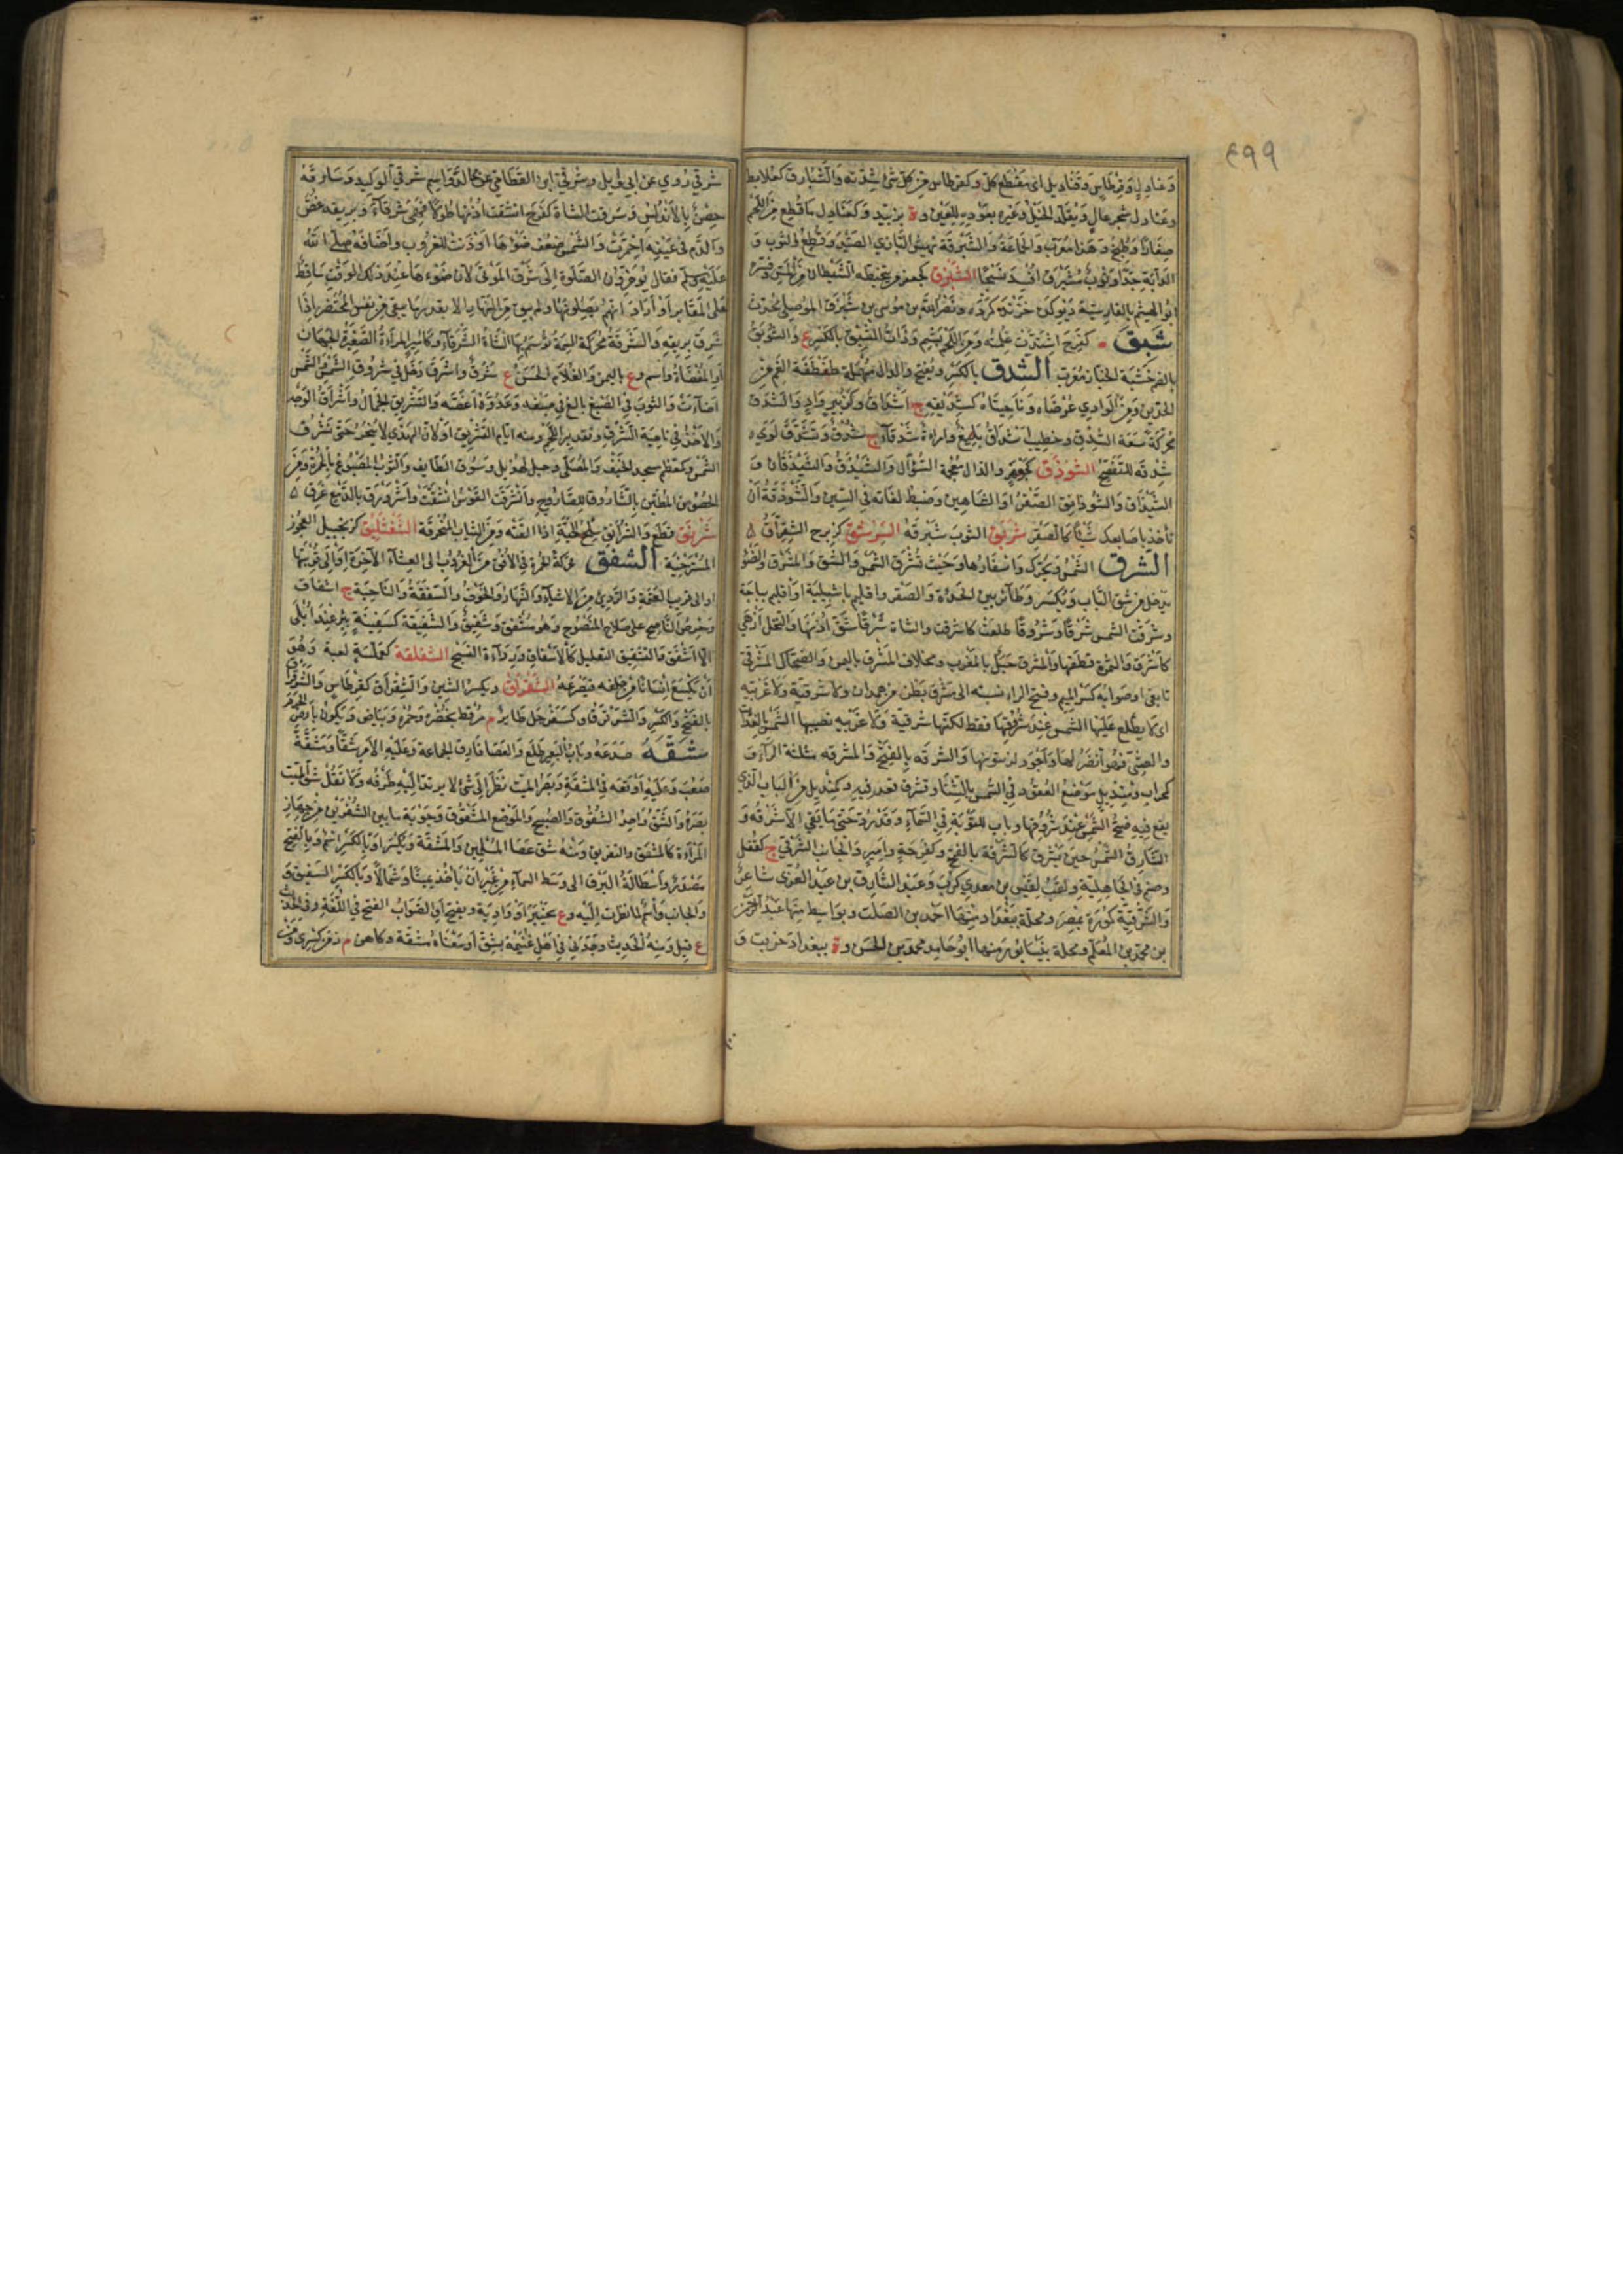 ٤٩٩
وعنادل وقرطاس وقناديل اى مقطع كله وكقرطاس من كل شئ شدته والشبارق كعلابط
وعنادل شجر عال ويقلد الخيل وغيره بعوده للعين وة بزبيد وكعنادل ما قطع من اللحم
صغارا وطبخ وهذا معرب والجماعة والشبرقة نهش البازي الصيد وقطع الثوب و
الدابة جدا وثوب مشبرق افسد نسجا الشبرق كجعفر من يتخبطه الشيطان من المس وفسره
ابو الهيثم بالفارسية ديوكده خزنده كرده ونصر الله بن موسى بن شبرق الموصلي محدث
شبق كفرح اشتدت غلمته ومن اللحم بشم وذات الشبق بالكسر ع والشوبق
بالضم خشبة الخباز معرب الشدق بالكسر ويفتح والدال مهملة طفطفة الفم من
الخدين ومن الوادي عرضاه وناحيتاه كشديقه ج اشداق وكزبير واد والشدق
محركة سعة الشدق وخطيب اشدق بليغ وامراة شدقاء ج شدق وتشدق لوى
شدقه للتفصح الشوذق كجوهر والذال معجمة السوار والشيذق والشيذقان و
الشيذاق والشوذانق الصقر او الشاهين وضبط لغاته فى السين والشوذقة ان
تأخذ باصابعك شيئا كالصقر شربق الثوب شبرقه الشرشق كزبرج الشقراق
الشرق الشمس ويحرك واسفارها وحيث تشرق الشمس والشق والمشرق والضوء
يدخل من شق الباب ويكسر وطائر بين الحدأة والصقر واقليم باشبيلية او اقليم بباجة
وشرقت الشمس شرقا وشروقا طلعت كاشرقت والشاة شرقا شق اذنها والنخل ازهى
كاشرق والثمرة قطفها والمشرق جبل بالمغرب ومخلاف المشرق باليمن والضحاك المشرقي
تابعي او صوابه كسر الميم وفتح الراء نسبة الى مشرق بطن من همدان ولا شرقية ولا غربية
اى لا يطلع عليها الشمس عند شروقها فقط لكنها شرقية ولا غربية تصيبها الشمس بالغداة
والعشي فهو انضر لها واجود لزيتونها والشرقة بالفتح والمشرقة مثلثة الراء و
كمحراب ومنديل موضع القعود في الشمس بالشتاء وتشرق قعد فيه وكمنديل من الباب الذي
يقع فيه ضح الشمس عند شروقها وباب للتوبة في السماء وقد رد حتى ما بقي الا شرقه و
الشارق الشمس حين تشرق كالشرقة بالفتح وكفرحة وامير والجانب الشرقي ج كقفل
وصنم في الجاهلية ولقب لقيس بن معدي كرب وعبد الشارق بن عبد العزى شاعر
والشرقية كورة بمصر ومحلة ببغداد منها احمد بن الصلت وبواسط منها عبد الرحمن
بن محمد بن المعلم ومحلة بنيسابور منها ابو حامد محمد بن الحسن وة ببغداد خربت و
شرقي روي عن ابي وايل وشرقي بن القطامي عن مجالد واسم شرقي الوليد وشارقة
حصن بالاندلس وشرقت الشاة كفرح انشقت اذنها طولا فهي شرقاء وبريقه غص
والدم في عينه احمرت والشمس ضعف ضوءها او دنت للغروب واضافه صلى الله
عليه وسلم فقال يؤخرون الصلوة الى شرق الموتى لان ضوءها عند ذلك الوقت ساقط
على المقابر او اراد انهم يصلونها ولم يبق من النهار الا بقدر ما يبقى من نفس المحتضر اذا
شرق بريقه والشرقة محركة السمة توسم بها الشاة الشرقاء وكامير المراة الصغيرة الجهاز
او المفضاة واسم وع باليمن والغلام الحسن ج شرق واشرق دخل في شروق الشمس والشمس
اضاءت والثوب في الصبغ بالغ في صبغه وعدوه اغصه والتشريق الجمال واشراق الوجه
والاخذ في ناحية الشرق وتقديد اللحم ومنه ايام التشريق او لان الهدي لا ينحر حتى تشرق
الشمس وكمعظم مسجد الخيف والمصلى وجبل لهذيل وسوق الطايف والثوب المصبوغ بالحمرة ومن
الحصون المطين بالشاروق للصاروج وانشرقت القوس انشقت واشرورق بالدمع غرق
شرنق قطع والشرانق سلخ الحية اذا القته ومن الثياب المتخرقة الشفشليق كزنجبيل العجوز
المسترخية الشفق محركة الحمرة في الافق من الغروب الى العشاء الآخرة او الى قريبها
او الى قريب العتمة والردي من الاشياء والنهار والخوف والشفقة والناحية ج اشفاق
وحرص الناصح على صلاح المنصوح وهو مشفق وشفيق والشفيقة كسفينة بئر عند ابلى
اشفق والتشفيق التقليل كالاشفاق ورداءة النسج الشفلقة كعملسة لعبة وهو
ان يكسع انسانا من خلفه فيصرعه الشقراق ويكسر الشين والشقراق كقرطاس والشرقراق
بالفتح والكسر والشرقرق كسفرجل طائر م مرقط بخضرة وحمرة وبياض ويكون بارض الحرم
شقه صدعه وناب البعير طلع والعصا فارق الجماعة وعليه الامر شقا ومشقة
صعب وعليه اوقعه في المشقة وبصر الميت نظر الى شئ لا يرتد اليه طرفه ولا تقل شق الميت
بصره والشق واحد الشقوق والصبح والموضع المشقوق وجوبة ما بين الشفرين من جهاز
المراة كالمشق والتفريق ومنه شق عصا المسلمين والمشقة ويكسر او بالكسر اسم وبالفتح
مصدر واستطالة البرق الى وسط السماء من غير ان يأخذ يمينا وشمالا وبالكسر الشقيق و
والجانب واسم لما نظرت اليه وع بخيبر او واد به ويفتح او الصواب الفتح في اللغة وفي الحديث
ع قيل ومنه الحديث وجدني في اهل غنيمة بشق او معناه مشقة وكاهن م زمن كسرى ومن